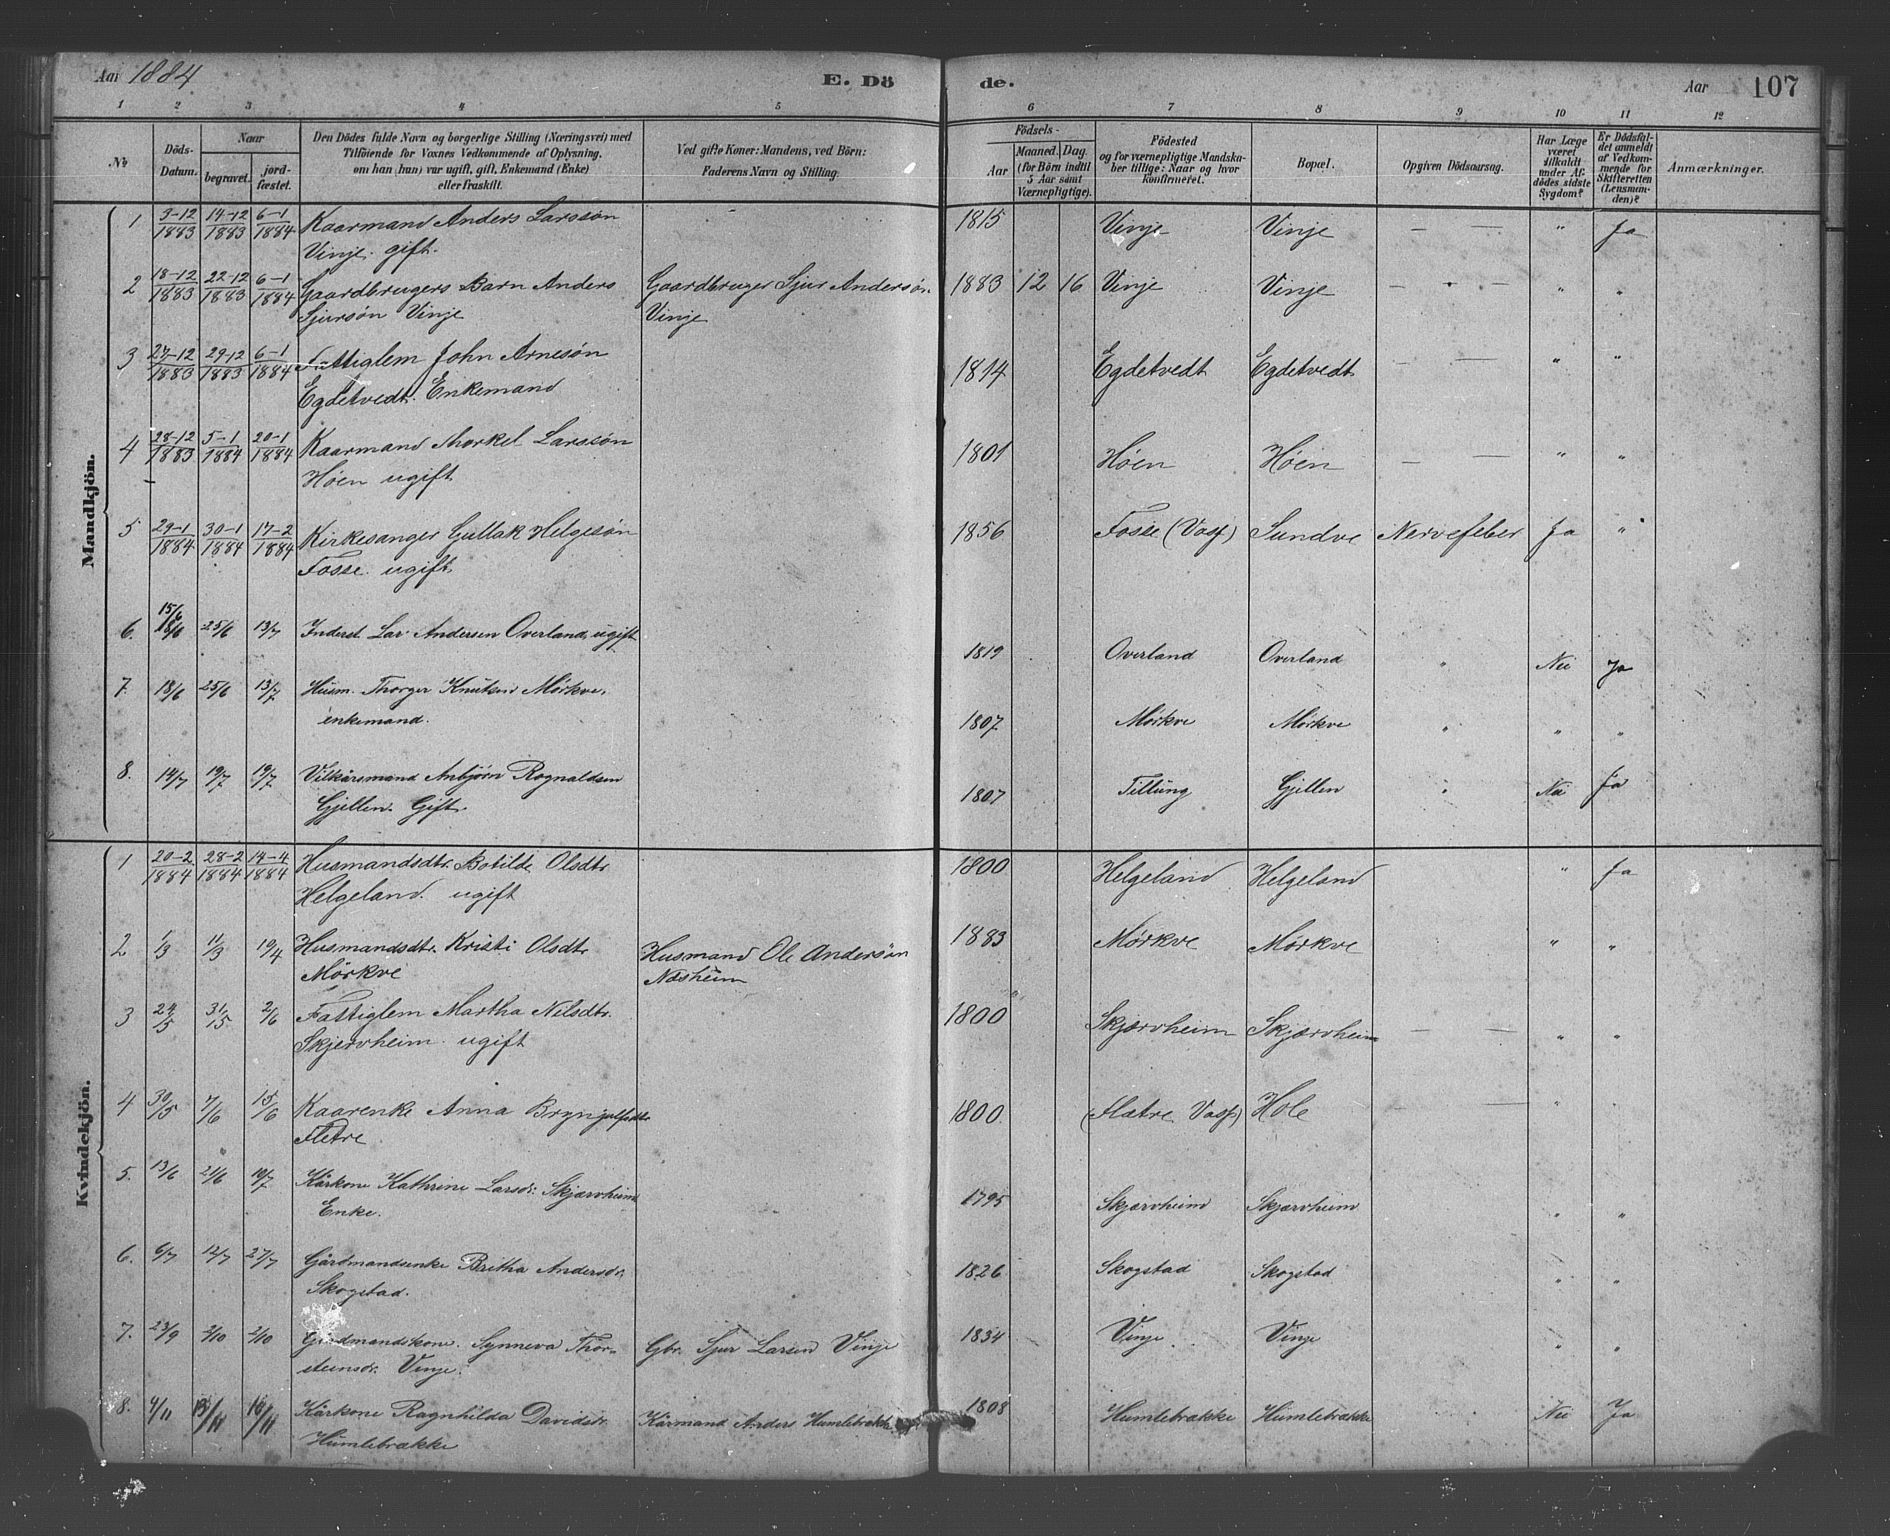 Aar 1884 E. Dö de. Aar 107
1 2 3 4 5 6 7 8 9 10 11 12
No
Döds-Datum.
Naar
begravet.
jordfæstet.
Den Dödes fulde Navn og borgerlige Stilling (Næringsvei) med
Tilföiende for Voxnes Vedkommende af Oplysning,
om han (hun) var ugift, gift, Enkemand (Enke)
eller fraskilt.
Ved gifte Koner: Mandens, ved Börn:
Faderens Navn og Stilling.
Födsels-
Aar
Maaned. Dag.
(for Börn indtil
5 Aar samt
Værnepligtige).
Födested
og for værnepligtige Mandska-
ber tillige: Naar og hvor
konfirmeret.
Bopæl.
Opgiven Dödsaarsag.
Har Læge
været
tilkaldt
under Af-
dödes sidste
Sygdom?
Er Dödsfal-
det anmeldt
af Vedkom-
mende for
Skifteretten
(Lensman-
den)?
Anmærkninger.
Mandkjön.
1 3-12/1883 14-12/1883 6-1/1884 Kaarmand Anders Larssøn 1815 Vinje Vinje — — " Ja
Vinje. gift.
2 18-12/1883 22-12/1883 6-1/1884 Gaardbrugers Barn Anders Gaardbruger Sjur Andersøn 1883 12 16 Vinje Vinje — " — " "
Sjursøn Vinje Vinje
3 27-12/1883 29-12/1883 6-1/1884 Fattiglem John Arnesøn 1814 Egdetvedt Egdetvedt — — " "
Egdetvedt. Enkemand
4 28-12/1883 5-1/1884 20-1/1884 Kaarmand Thorkel Larssøn 1801 Høen Høen — — " "
Høen ugift
5 29-1/1884 30-1/1884 17-2/1884 Kirkesanger Gullak Helgesøn 1856 Fosse (Voss) Sundve Nervefeber Ja "
Fosse. ugift
6. 15/6 25/6 13/7 Inderst Lar. Andersen Overland, ugift 1819 Overland Overland " Nei Ja
7. 18/6 25/6 13/7 Husm. Thorger Knutsen Mørkve, 1807 Mørkve Mørkve " " "
enkemand.
8. 14/7 19/7 19/7 Vilkårsmand Anbjørn Rognaldsen 1807 Tillung Gjellen " Nei Ja
Gjellen. Gift.
Kvindekjön.
1 20-2/1884 28-2/1884 14-4/1884 Husmandsdtr. Botilde Olsdtr 1800 Helgeland Helgeland " Ja
Helgeland. ugift
2 1/3 11/3 19/4 Husmandsdtr. Kristi Olsdtr Husmand Ole Andersøn 1883 Mørkve Mørkve " "
Mörkve Næsheim
3 24/5 31/5 2/6 Fattiglem Martha Nilsdtr. 1800 Skjærvheim Skjærvheim — — " "
Skjervheim. ugift
4 30/5 7/6 15/6 Kaarenke Anna Bryngelfsdtr 1800 (Flætre Voss) Hole — — " "
Fletre
5. 13/6 21/6 19/7 Kårkone Kathrine Larsdr: Skjærvheim 1795 Skjærvheim Skjærvheim " "
Enke.
6. 6/7 12/7 27/7 Gårdmandsenke Britha Andersdr. 1826 Skogstad Skogstad " "
Skogstad.
7. 23/9 2/10 2/10 Gårdmandskone. Synneva Thor- Gbr. Sjur Larsen Vinje 1834 Vinje Vinje " "
steinsdr. Vinje.
8. 4/11 13/11 18/11 Kårkone Ragnhilda Davidsdr. Kårmand Anders Humlebrække 1808 Humlebrække Humlebrække Nei Ja
Humlebrække